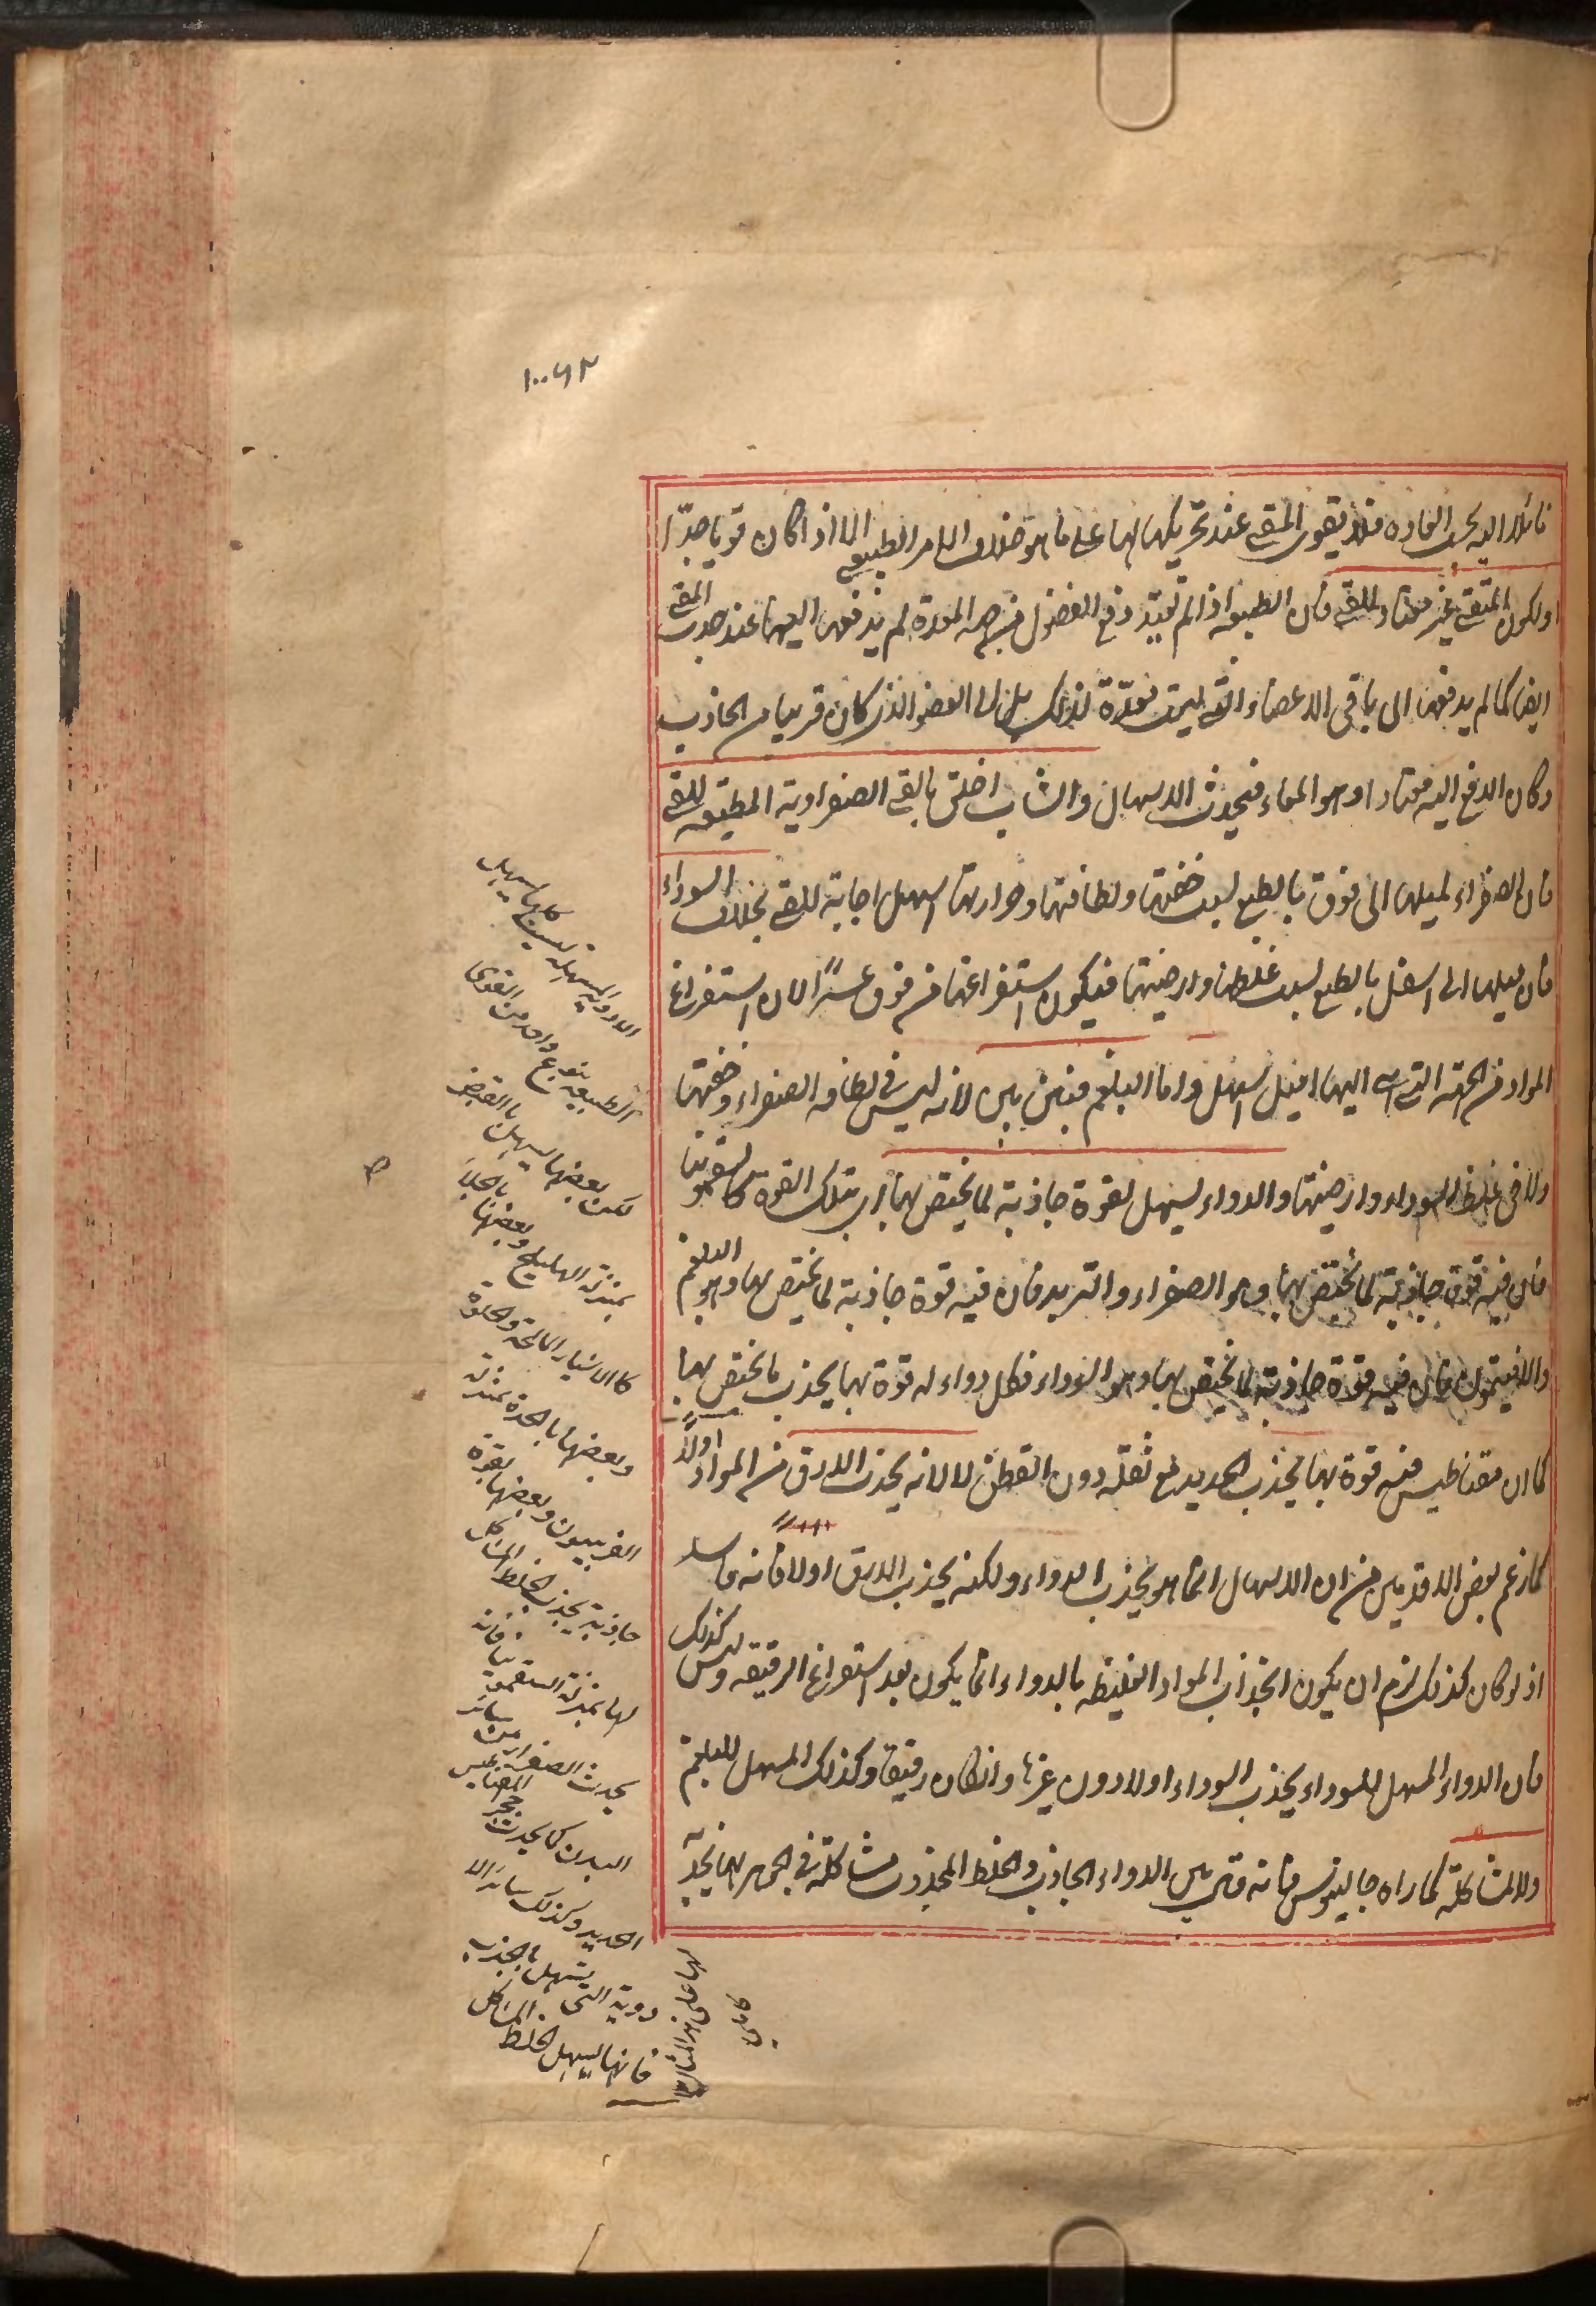 ١٠٠٩٢
مائلا اليه بحسب العادة فلا يقوى المقئ عند تحريكها لها على ما هو خلاف الامر الطبيعي الا اذا كان قويا جدّا
او لكون المتقئ غير معتاد للقئ فان الطبيعه اذا لم تعتد دفع الفضول من جهه المعدة لم يدفعها اليها عند جذب المقئ
ايضا كما لم يدفعها الى باقي الاعضاء التي ليست معدّة لذلك بل الى العضو الذى كان قريبا من الجاذب
وكان الدفع اليه معتادا وهو المعاء فيحدث الاسهال والشاب اخلق بالقئ الصفراوية المطيعه للقئ
فان الصفراء لميلها الى فوق بالطبع لسبب خفتها ولطافتها وحرارتها اسهل اجابة للقئ بخلاف السوداء
فان ميلها الى اسفل بالطبع لسبب غلظها وارضيتها فيكون استفراغها من فوق عسرًا لان استفراغ
المواد من الجهة التي هى اليها اميل اسهل واما البلغم فبين بين لانه ليس في لطافه الصفراء وخفتها
ولا فى غلظ السوداء وارضيتها والدواء يسهل لقوة جاذبة لما يختص بها اى بتلك القوة كالسقمونيا
فان فيه قوة جاذبة لما يختص بها وهو الصفراء والتربد فان فيه قوة جاذبة لما يختص بها وهو البلغم
والافتيمون فان فيه قوة جاذبة لما يختص بها وهو السوداء فكل دواء له قوة بها يجذب ما يختص بها
كما ان مقناطيس فيه قوة بها يجذب الحديد مع ثقله دون القطن لا لانه يجذب الارق من المواد اولًا
كما زعم بعض الاقدمين من ان الاسهال انما هو بجذب الدواء ولكنه يجذب الارق اولا فانه فاسد
اذ لو كان كذلك لزم ان يكون انجذاب المواد الغليظه بالدواء انما يكون بعد استفراغ الرقيقه وليس كذلك
فان الدواء المسهل للسوداء يجذب السوداء اولا دون غيرها وان كان رقيقا وكذلك المسهل للبلغم
ولا لمشاكلة كما راه جالينوس فانه قال بين الدواء الجاذب والخلط المجذوب مشاكلة في الجوهر بها يجذبه
الادوية المسهلة ليست كلها يسهل
الطبيعه بنوع واحد من القوى
لكن بعضها يسهل بالقبض
بمنزلة الهليلج وبعضها بالجلاء
كالاشياء المالحة والحلوة
وبعضها بالحدة بمنزلة
الفربيون وبعضها بقوة
جاذبة يجذب الخلط المشاكل
لها بمنزلة السقمونيا فانه
يجذب الصفراء من سائر
البدن كما يجذب حجر المغناطيس
الحديد وكذلك سائر الا
دوية التي يسهل بالجذب
فانها يسهل الخلط المشاكل
لها على هذا المثال